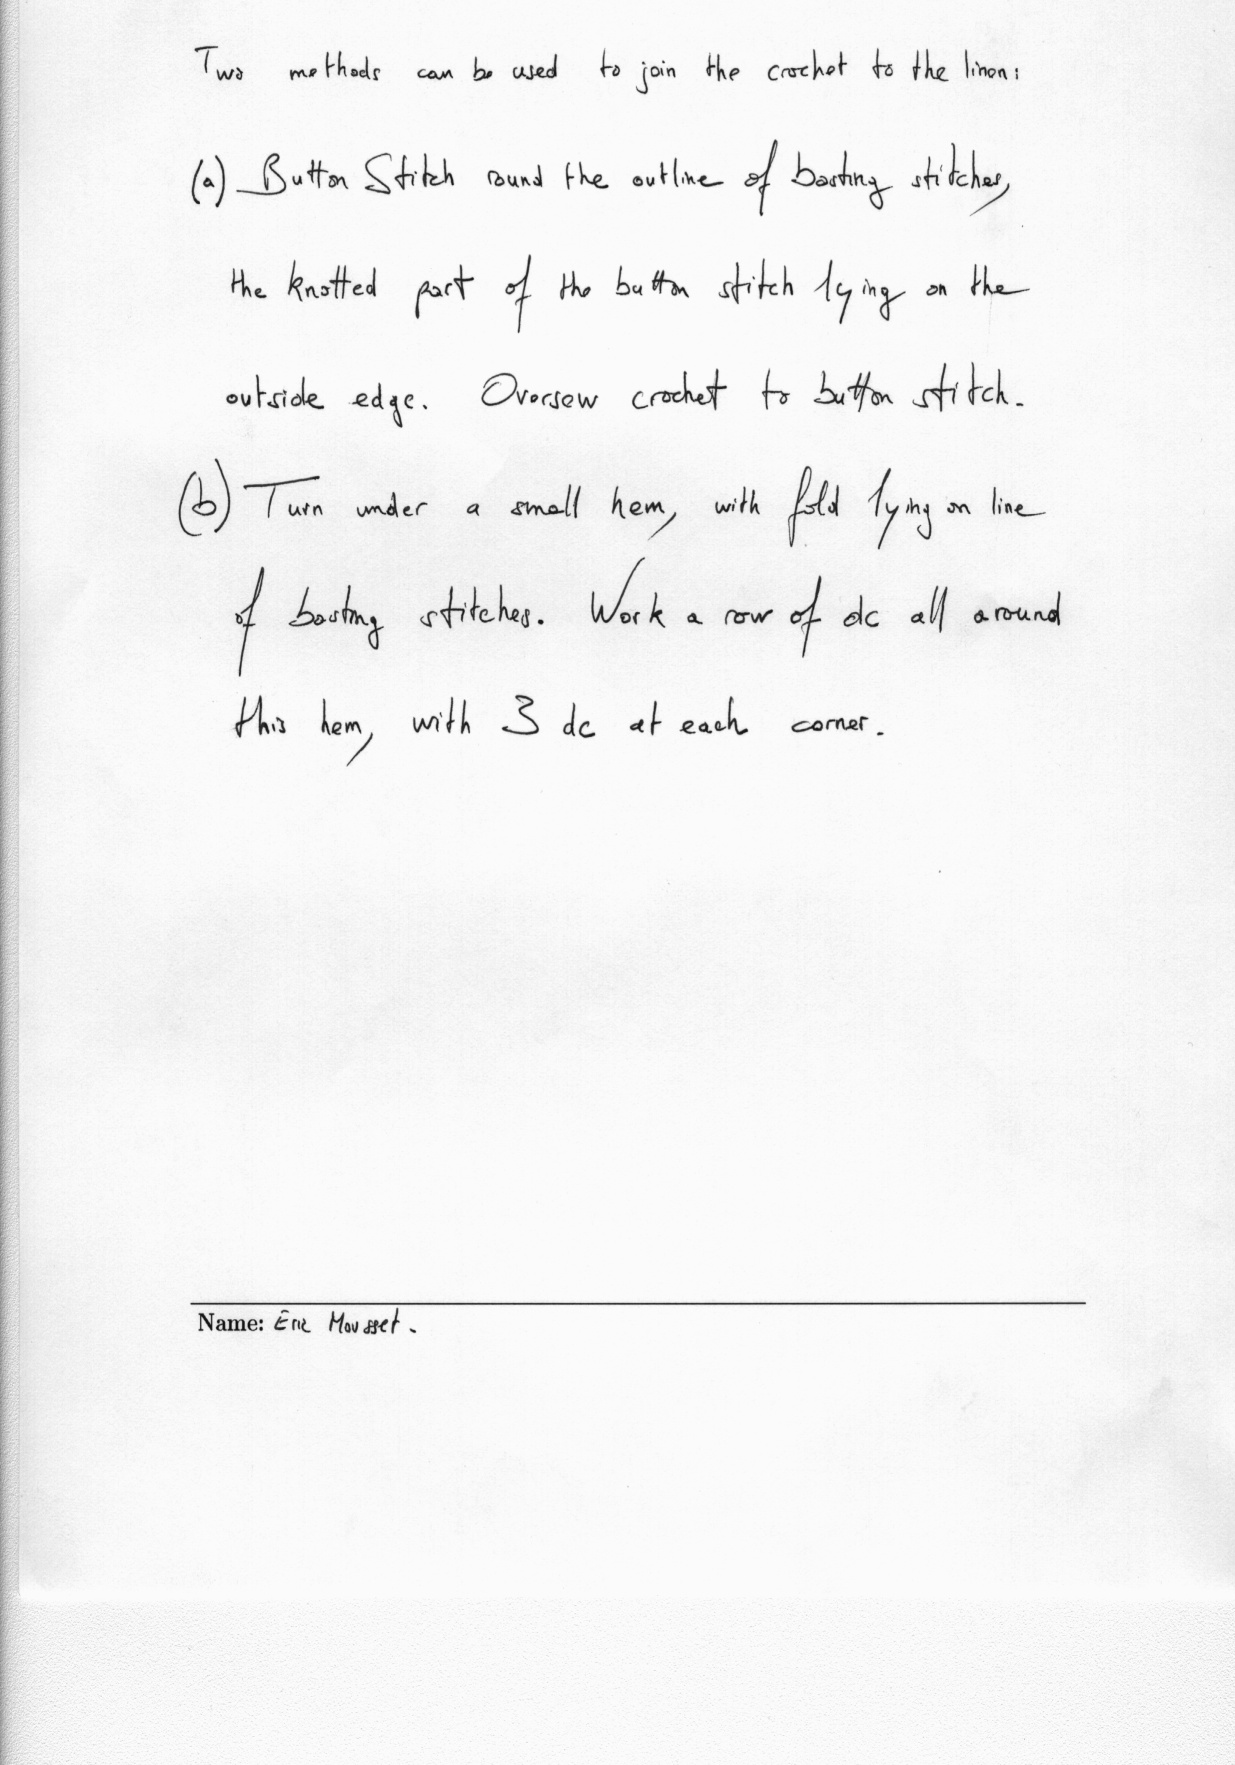 Two methods can be used to join the crochet to the linen:
(a) Button Stitch round the outline of basting stitches,
the knotted part of the button stitch lying on the
outside edge. Oversew crochet to button stitch.
(b) Turn under a small hem, with fold lying on line
of basting stitches. Work a row of dc all around
this hem, with 3 dc at each corner.
Name: Eric Mousset.